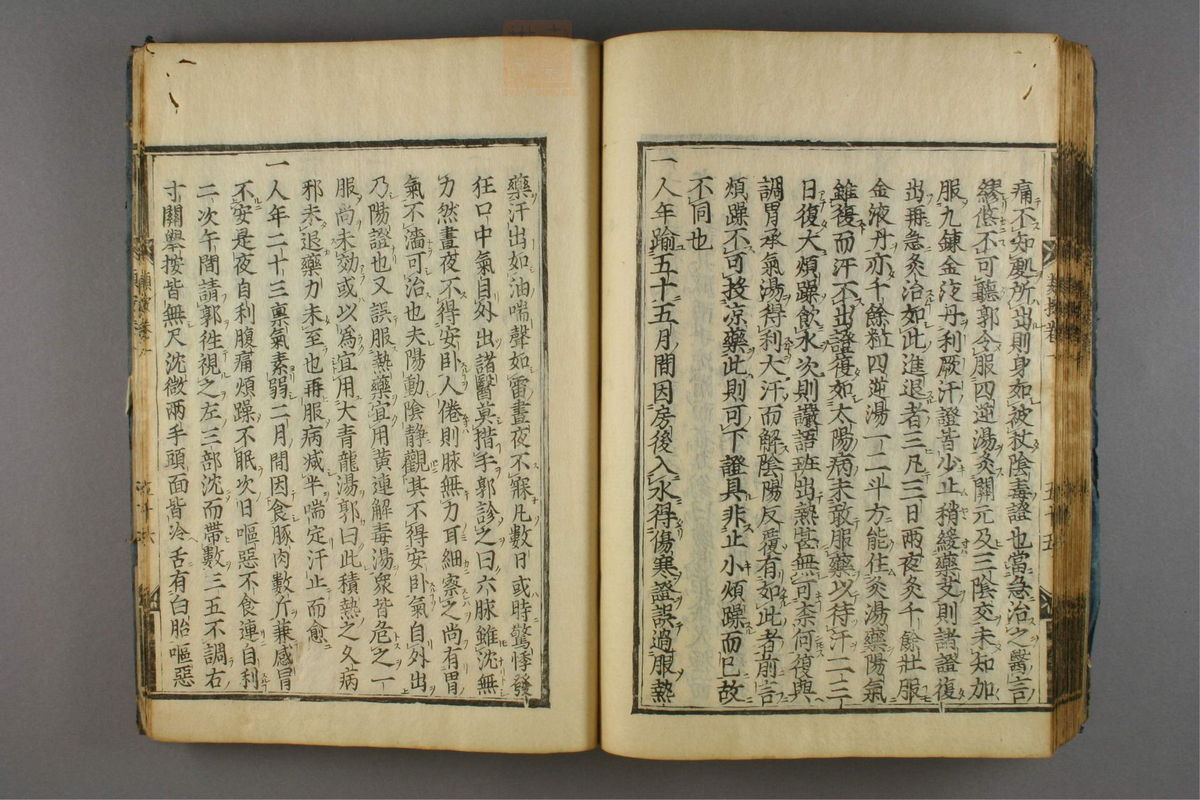 痛不知處所出則身如被杖陰毒證也當急治之醫言
繆悠不可聽郭令服四逆湯灸關元及三陰交未知加
服九鍊金液丹利厥汗證皆少止稍緩藥艾則諸證復
出再急灸治如此進退者三凡三日兩夜灸千餘壯服
金液丹亦千餘粒四逆湯一二斗方能住灸湯藥陽氣
雖復而汗不出證復如太陽病未敢服藥以待汗二三
日復大煩躁飲水次則讝語班出熱甚無可柰何復與
調胃承氣湯得利大汗而解陰陽反覆有如此者前言
煩躁不可投凉藥此則可下證具非止小煩躁而已故
不同也
一人年踰五十五月間因房後入水得傷寒證誤過服熱
藥汗出如油喘聲如雷晝夜不寐凡數日或時驚悸發
狂口中氣自外出諸醫莫措手郭診之曰六脉雖沈無
力然晝夜不得安卧人倦則脉無力耳細察之尚有胃
氣不濇可治也夫陽動陰静觀其不得安卧氣自外出
乃陽證也又誤服熱藥宜用黄連解毒湯衆皆危之一
服尚未効或以爲宜用大青龍湯郭曰此積熱之久病
邪未退藥力未至也再服病减半喘定汗止而愈
一人年二十三禀氣素弱二月間因食豚肉數斤兼感冒
不安是夜自利腹痛煩躁不眠次日嘔惡不食連自利
二次午間請郭徃視之左三部沈而帶數三五不調右
寸關擧按皆無尺沈微兩手頭面皆冷舌有白胎嘔惡